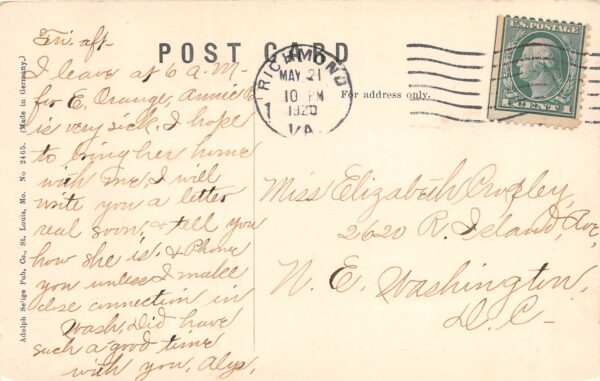 POST CARD
Fri. aft.
I leave at 6 A.M.
for E. Orange, Annie B
is very sick, I hope
to bring her home
with me, I will
write you a letter
real soon, & tell you
how she is, & Phone
you unless I make
close connection in
Wash, Did have
such a good time
with you, Alys,
RICHMOND
MAY 21
10 PM
1920
VA.
1
U.S. POSTAGE
1 CENT 1
For address only.
Miss Elizabeth Cropley,
2620 R. Island, Ave,
N. E. Washington,
D.C.
Adolph Selige Pub. Co., St. Louis, Mo. No 2465. (Made in Germany.)